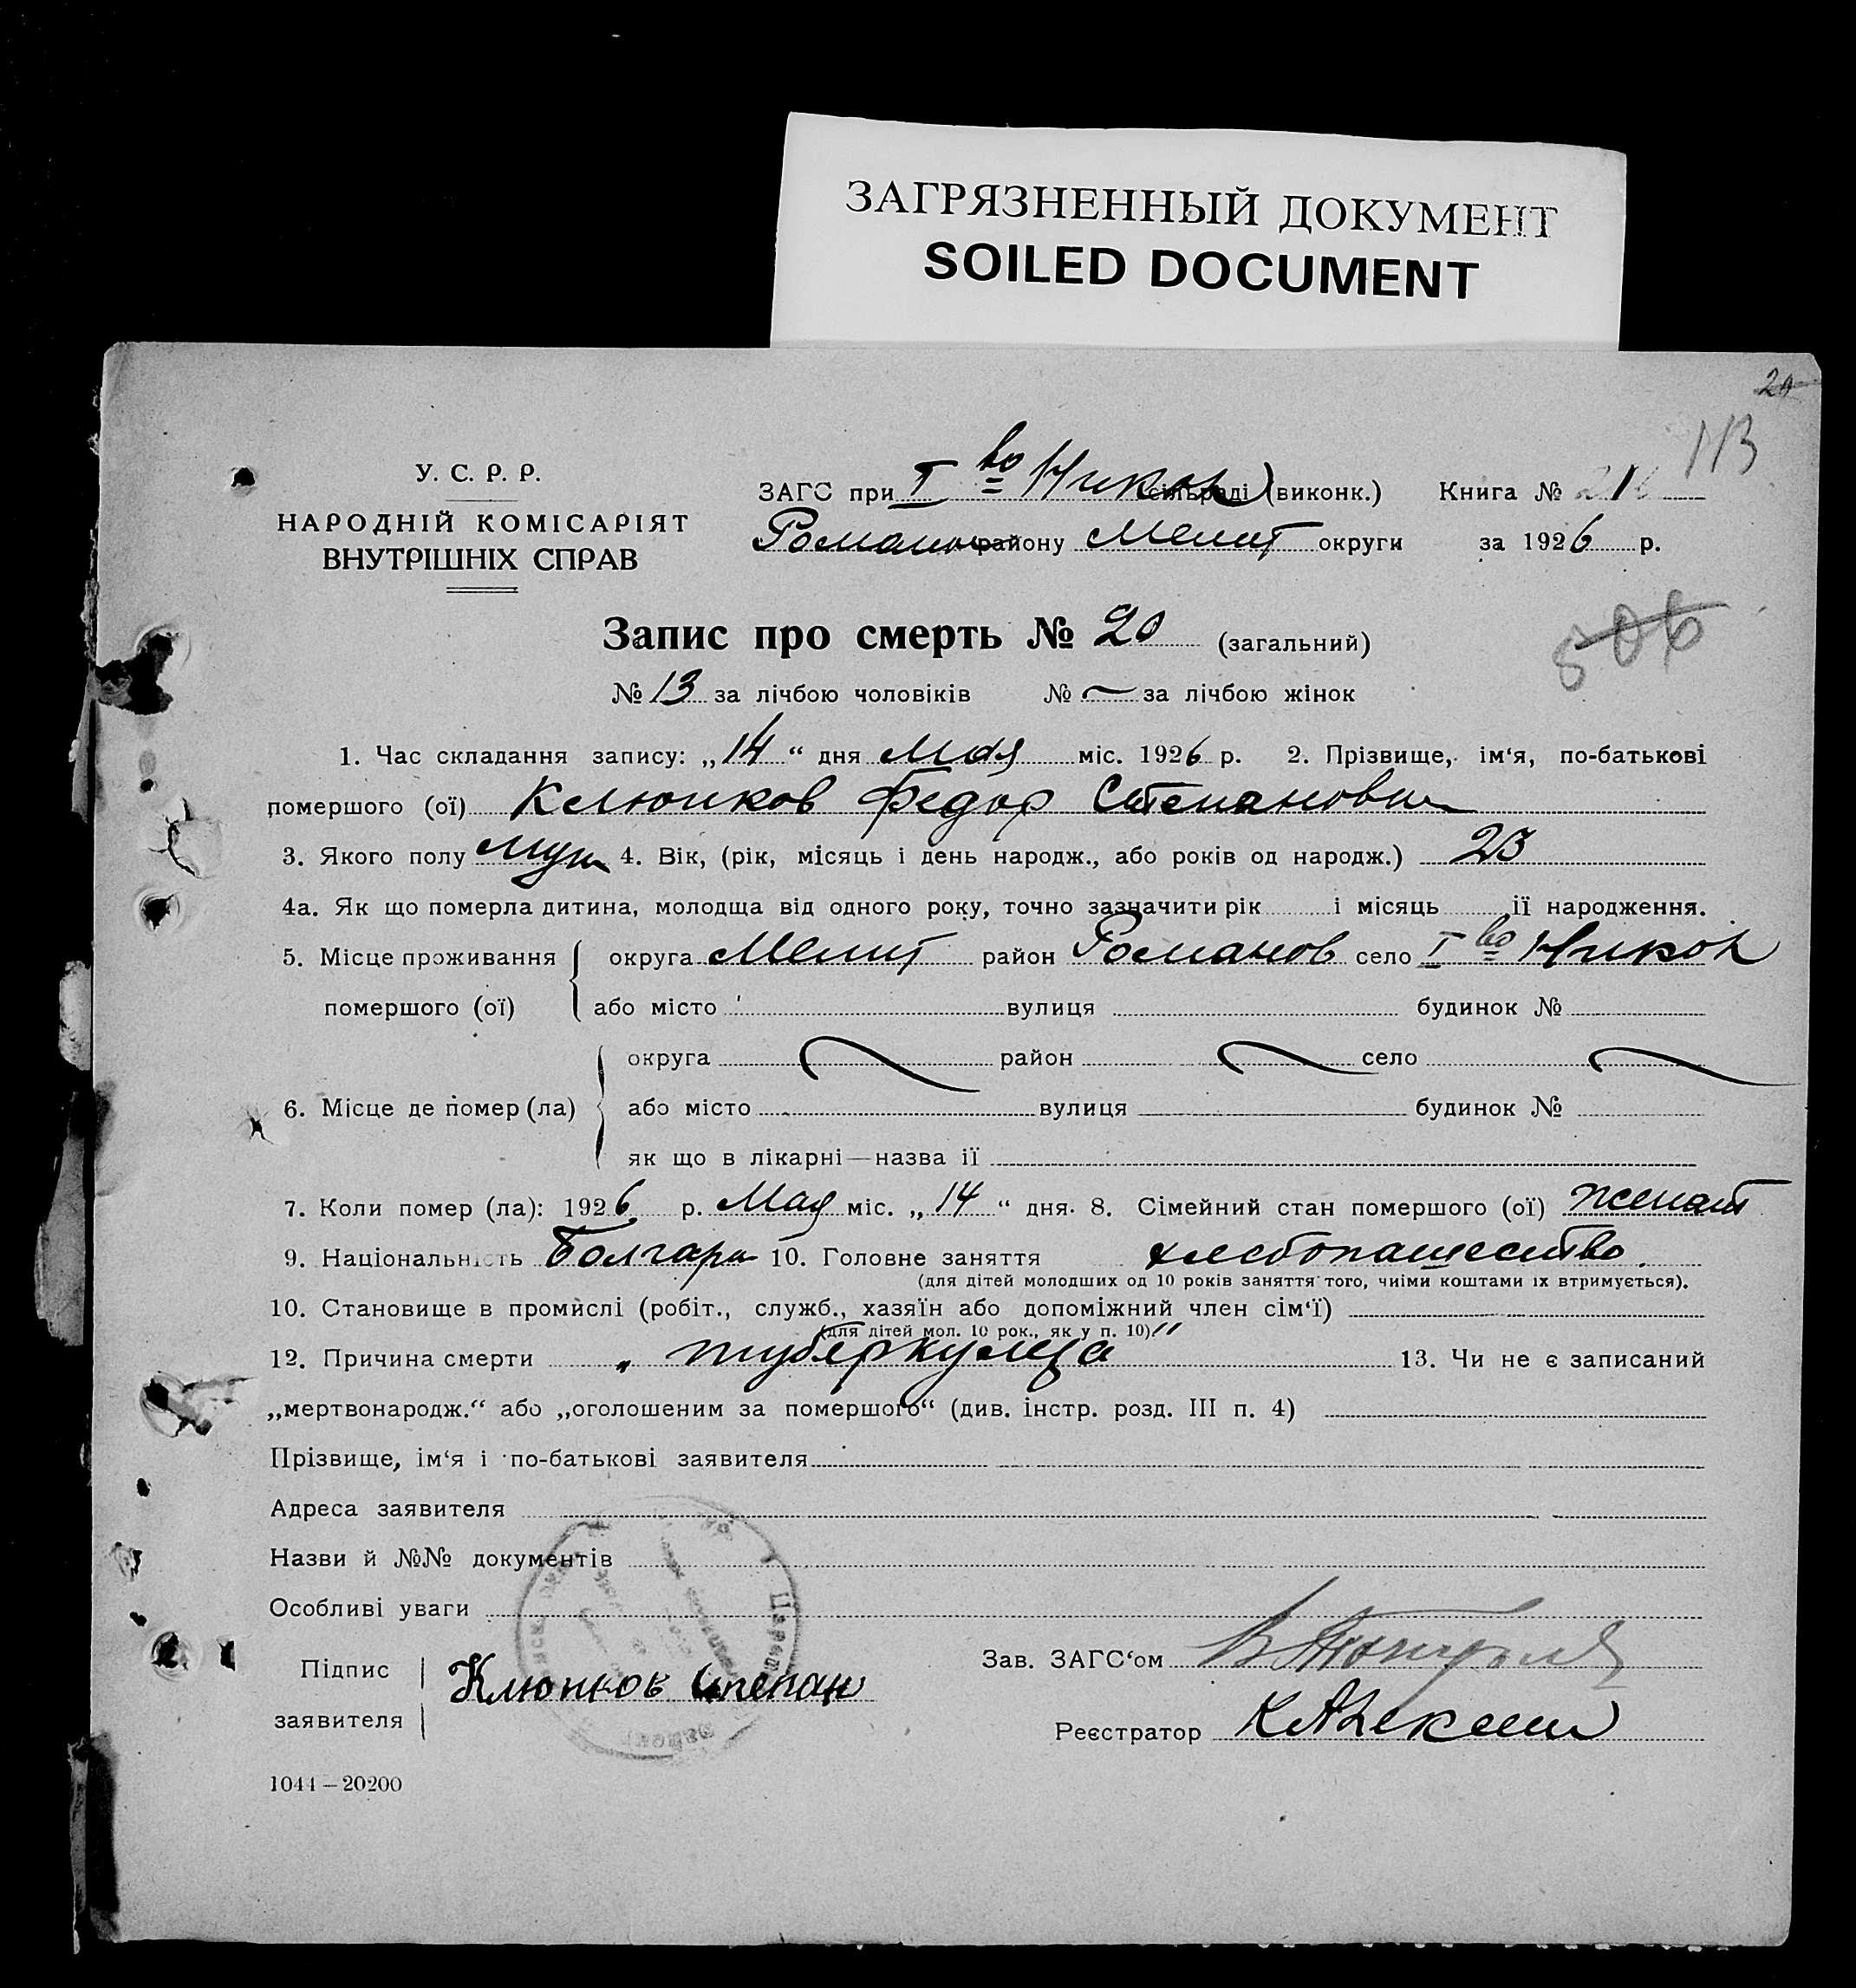 ЗАГРЯЗНЕННЫЙ ДОКУМЕНТ
SOILED DOCUMENT
20
113
У. С. Р. Р.
НАРОДНІЙ КОМІСАРІЯТ
ВНУТРІШНІХ СПРАВ
ЗАГС при I во Никол сільраді (виконк.) Книга №
Романов району Мелит округи за 1926 р.
Запис про смерть № 20 (загальний)
506
№ 13 за лічбою чоловіків № — за лічбою жінок
1. Час складання запису: „14“ дня Мая міс. 1926 р. 2. Прізвище, ім‘я, по-батькові
помершого (ої) Клюпков Федор Степанович
3. Якого полу муж 4. Вік, (рік, місяць і день народж., або років од народж.) 23
4а. Як що померла дитина, молодща від одного року, точно зазначити рік і місяць її народження.
5. Місце проживання округа Мелит район Романов село I во Никол
помершого (ої) або місто вулиця будинок №
округа район село
6. Місце де помер (ла) або місто вулиця будинок №
як що в лікарні—назва її
7. Коли помер (ла): 1926 р. Мая міс. „14“ дня. 8. Сімейний стан помершого (ої) женат
9. Національність Болгари 10. Головне заняття хлебопашество.
(для дітей молодших од 10 років заняття того, чиїми коштами їх втримується).
10. Становище в промислі (робіт., служб., хазяїн або допоміжний член сім‘ї)
(для дітей мол. 10 рок., як у п. 10)
12. Причина смерти „туберкулеза“ 13. Чи не є записаний
„мертвонародж.“ або „оголошеним за помершого“ (див. інстр. розд. III п. 4)
Прізвище, ім‘я і по-батькові заявителя
Адреса заявителя
Назви й №№ документів
Особливі уваги
Підпис
заявителя
Клюпков Степан
Зав. ЗАГС‘ом
Реєстратор
1044—20200